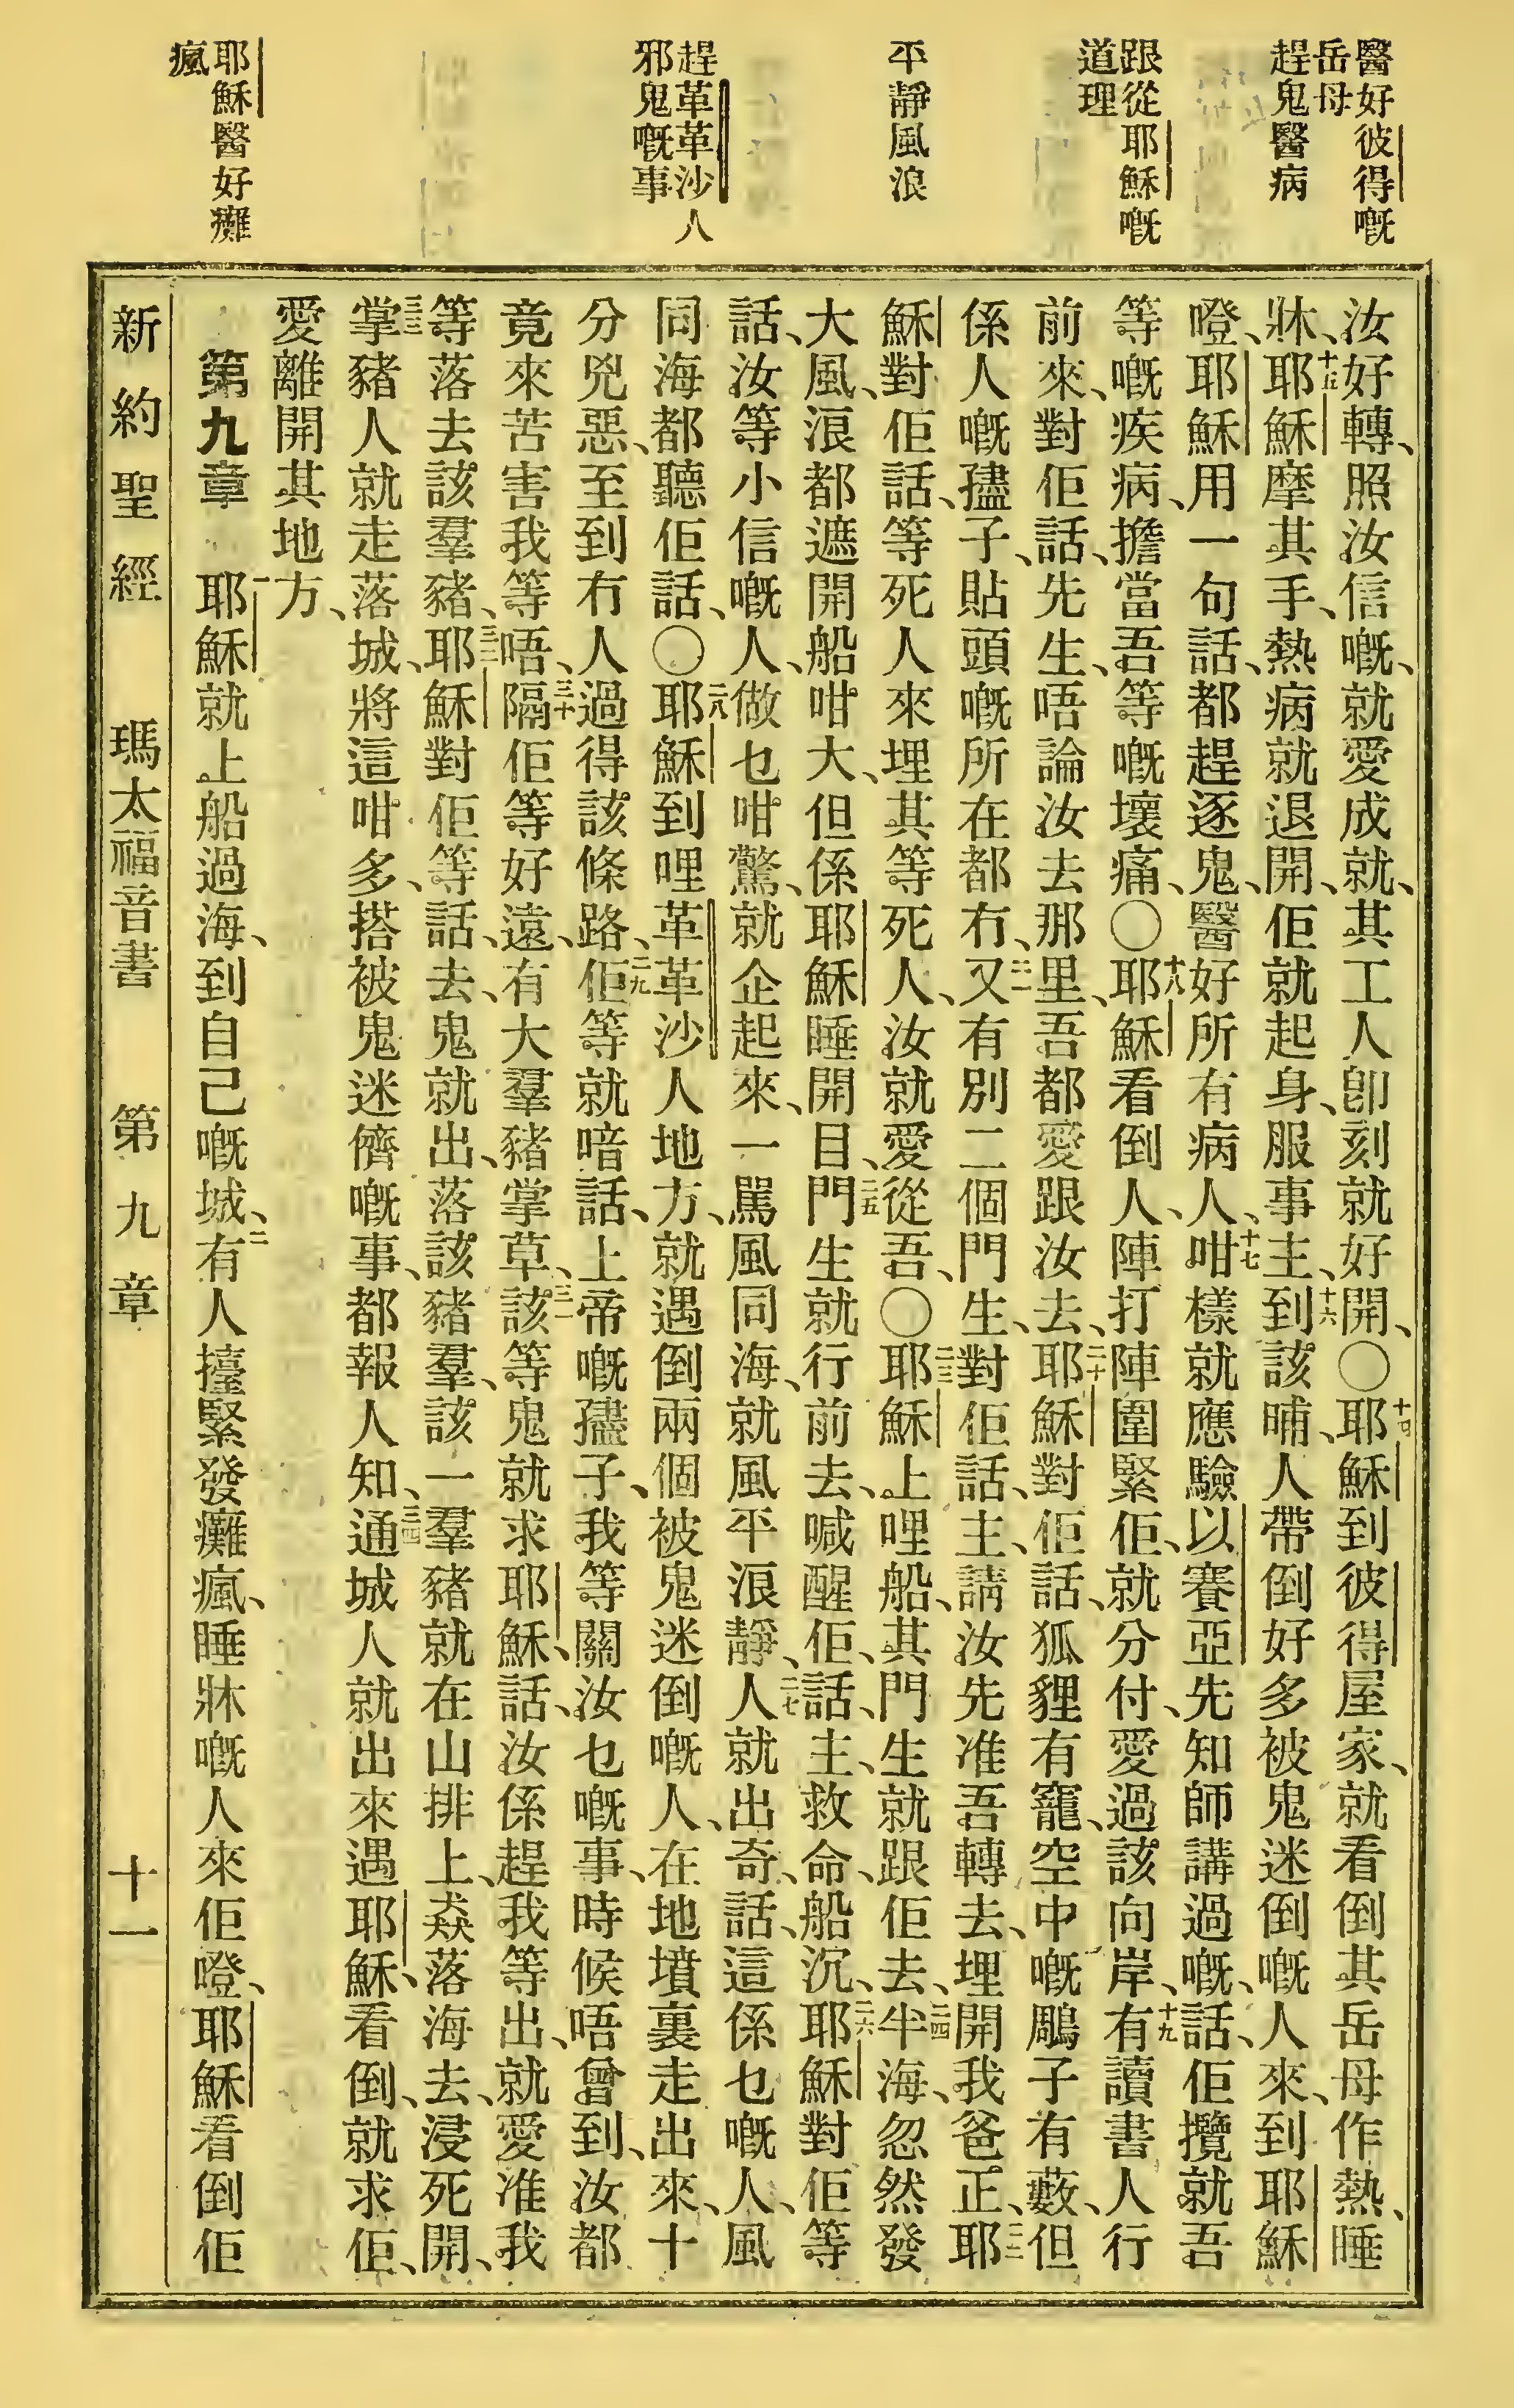 醫好彼得嘅
岳母
趕鬼醫病
跟從耶穌嘅
道理
平靜風浪
趕革革沙人
邪鬼嘅事
耶穌醫好癱
瘋
汝好轉、照汝信嘅、就愛成就、其工人卽刻就好開、〇十四耶穌到彼得屋家、就看倒其岳母作熱、睡
牀、十五耶穌摩其手、熱病就退開、佢就起身、服事主、十六到該晡、人帶倒好多被鬼迷倒嘅人來、到耶穌
噔、耶穌用一句話、都趕逐鬼、醫好所有病人、十七咁樣就應驗以賽亞先知師講過嘅、話、佢攬就吾
等嘅疾病、擔當吾等嘅壞痛、〇十八耶穌看倒人、陣打陣圍緊佢、就分付、愛過該向岸、十九有讀書人行
前來、對佢話、先生、唔論汝去那里、吾都愛跟汝去、二十耶穌對佢話、狐貍有竉、空中嘅鵰子有藪、但
係人嘅孻子、貼頭嘅所在都冇、二一又有別二個門生、對佢話、主、請汝先准吾轉去、埋開我爸正、二二耶
穌對佢話、等死人來埋其等死人、汝就愛從吾、〇二三耶穌上哩船、其門生就跟佢去、二四半海、忽然發
大風、浪都遮開船咁大、但係耶穌睡開目、二五門生就行前去、喊醒佢、話、主、救命、船沉、二六耶穌對佢等
話、汝等小信嘅人、做乜咁驚、就企起來、一罵風同海、就風平浪靜、二七人就出奇、話、這係乜嘅人、風
同海都聽佢話、〇二八耶穌到哩革革沙人地方、就遇倒兩個被鬼迷倒嘅人、在地墳裏走出來、十
分兇惡、至到冇人過得該條路、二九佢等就喑話、上帝嘅孻子、我等關汝乜嘅事、時候唔曾到、汝都
竟來苦害我等唔、三十隔佢等好遠、有大羣豬掌草、三一該等鬼就求耶穌、話、汝係趕我等出、就愛准我
等落去該羣豬、三二耶穌對佢等話、去、鬼就出、落該豬羣、該一羣豬就在山排上、猋落海去、浸死開、
三三掌豬人就走落城、將這咁多、搭被鬼迷儕嘅事、都報人知、三四通城人就出來遇耶穌、看倒、就求佢、
愛離開其地方、
第九章　一耶穌就上船過海、到自己嘅城、二有人擡緊發癱瘋、睡牀嘅人來佢噔、耶穌看倒佢
新約聖經　瑪太福音書　第九章　十一